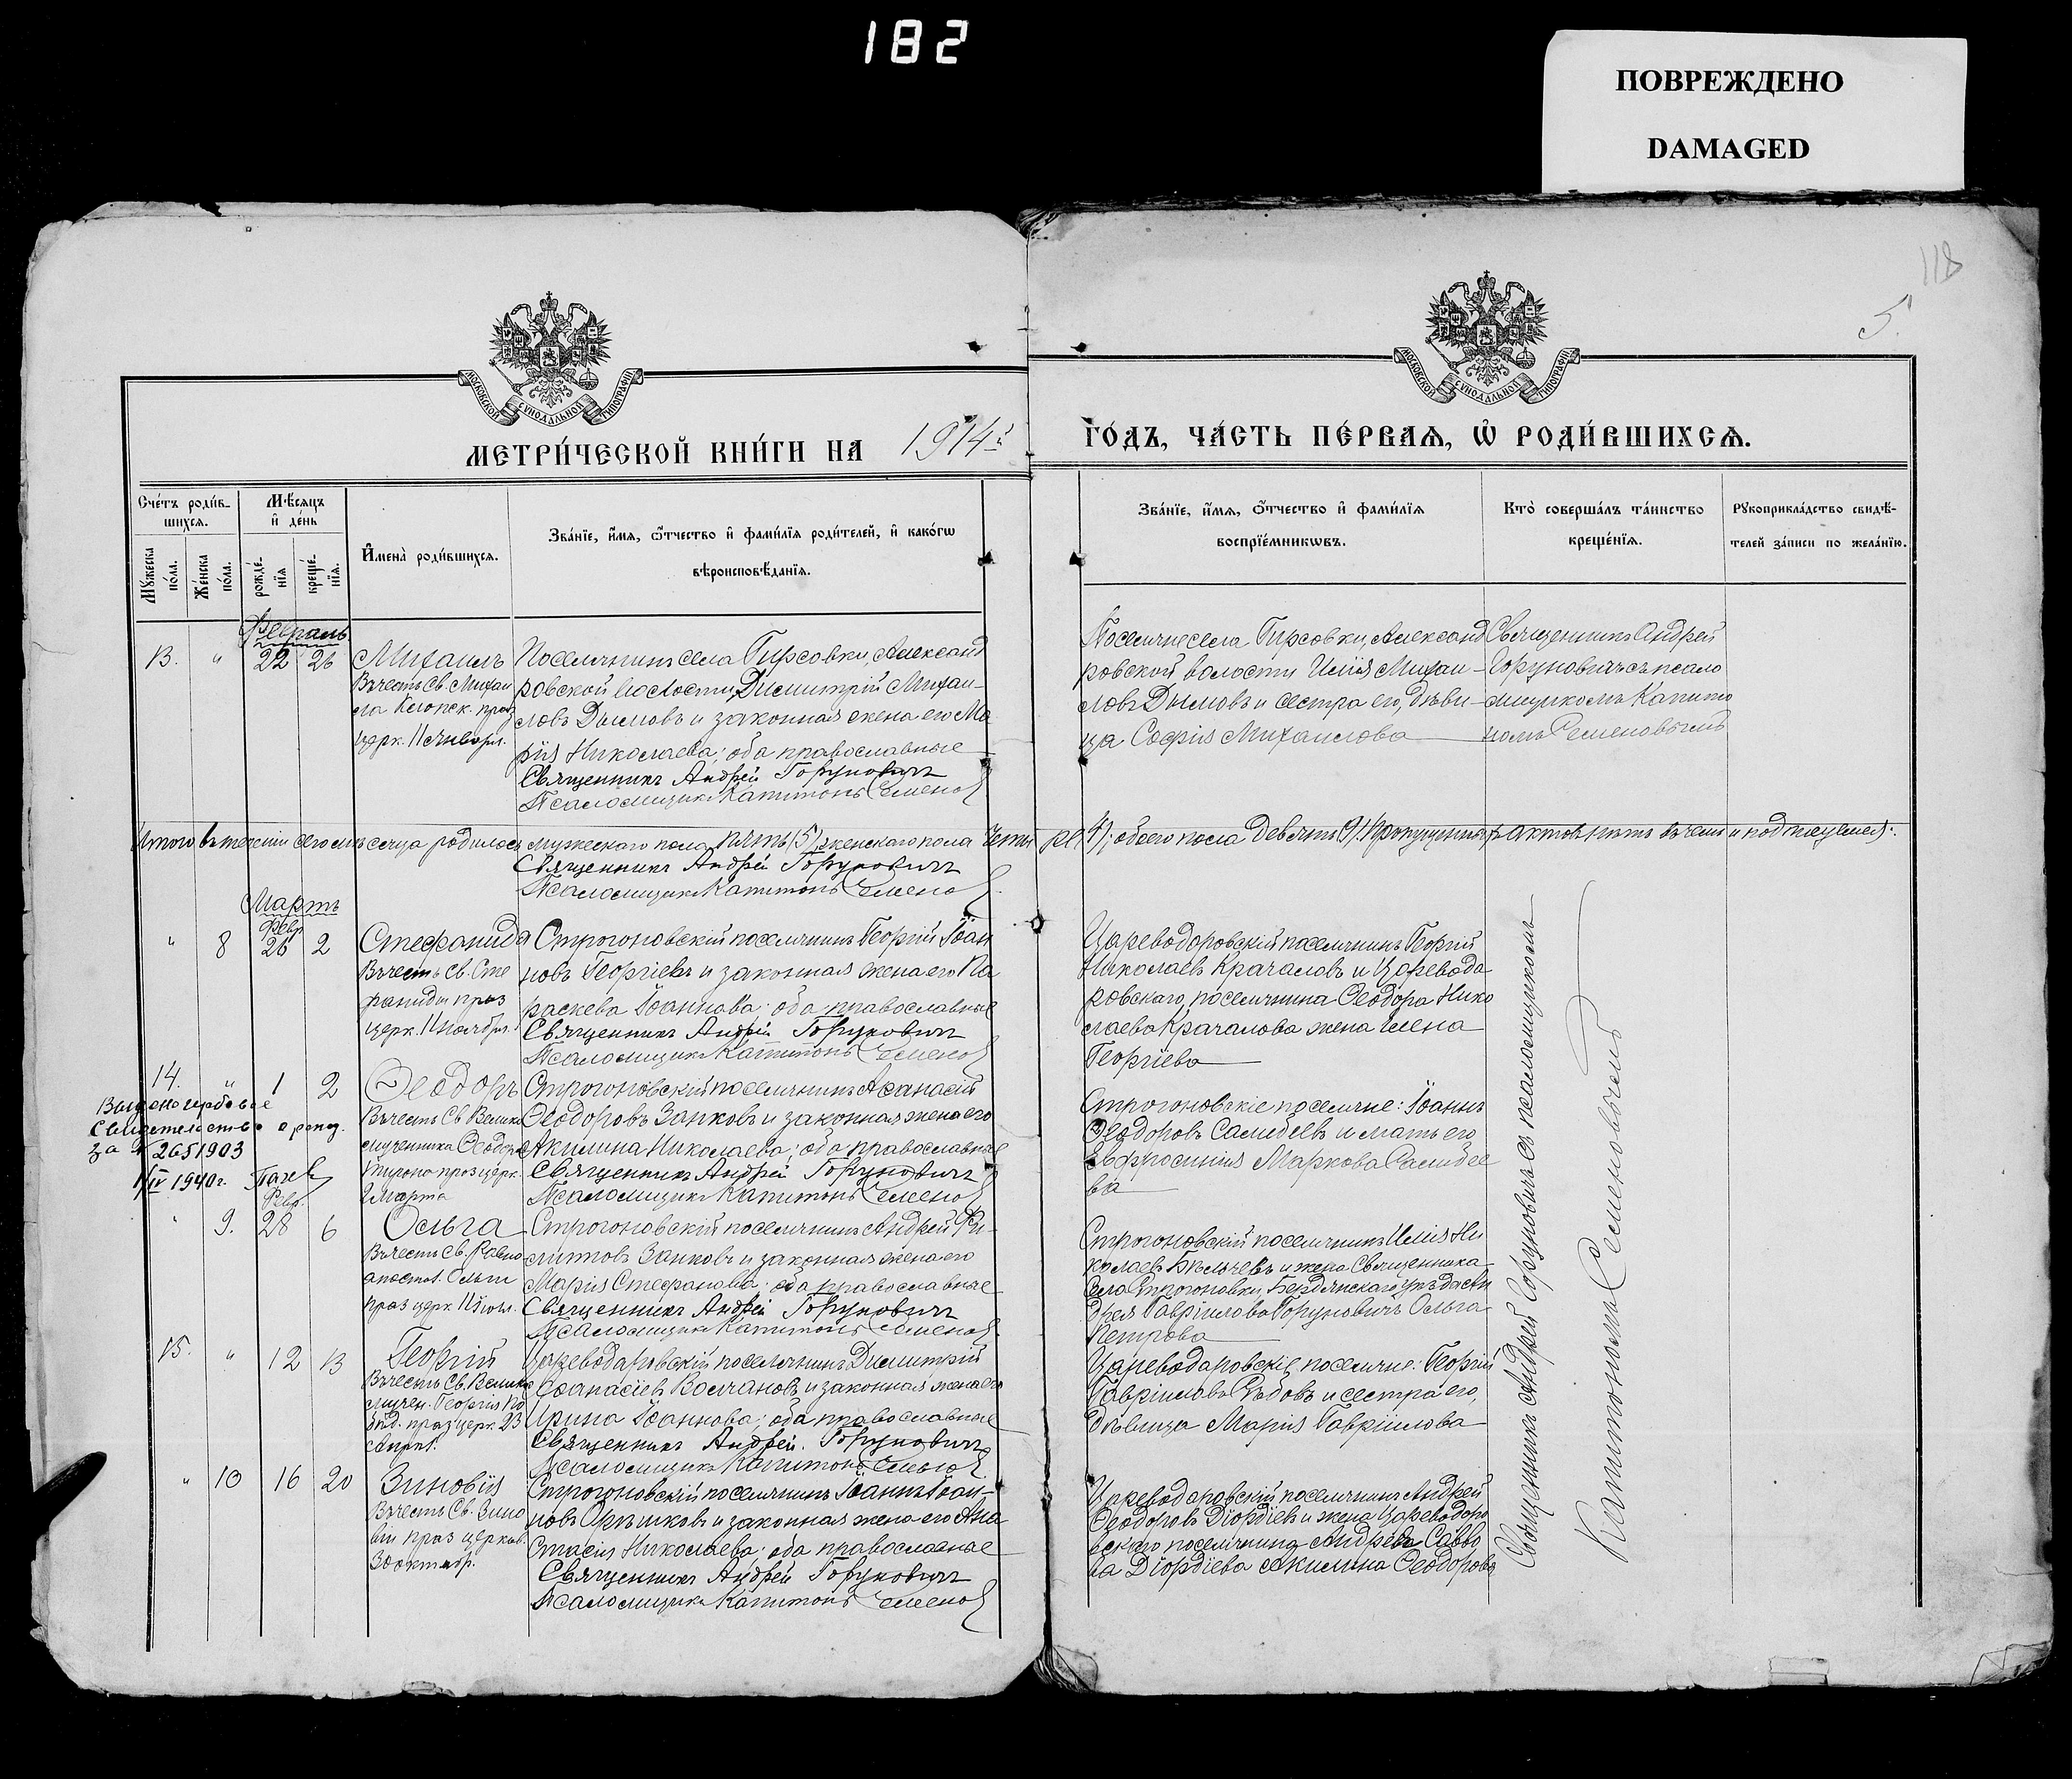 182
ПОВРЕЖДЕНО
DAMAGED
118
5.
МОСКОВСКОЙ СѴНОДАЛЬНОЙ ТИПОГРАФІИ
МОСКОВСКОЙ СѴНОДАЛЬНОЙ ТИПОГРАФІИ
МЕТРИ́ЧЕСКОЙ КНИ́ГИ НА 1914й ГО́ДЪ, ЧА́СТЬ ПЕ́РВАѦ, Ѡ҆ РОДИ́ВШИХСѦ.
Сче́тъ роди́в-
шихся.
Мѣ́сяцъ
и҆ де́нь
Мꙋ́жеска
по́ла.
Же́нска
по́ла.
рожде́-
нїѧ
креще́-
нїѧ.
И҆мена̀ роди́вшихся.
Зва́нїе, и҆́мѧ, ѻ҆́тчество и҆ фами́лїѧ роди́телей, и҆ како́гѡ
вѣроисповѣ́данїѧ.
Зва́нїе, и҆́мѧ, ѻ҆́тчество и҆ фами́лїѧ
воспрїе́мникѡвъ.
Кто̀ соверша́лъ та́инство
креще́нїѧ.
Рꙋкоприкла́дство свидѣ́-
телей за́писи по жела́нїю.
Февраль
13. " 22 26 Михаилъ
Въ честь Св. Михаи
ла Клопск. праз
церк. 11 января.
Поселянинъ села Гирсовки, Александ
ровской волости, Димитрій Михаи-
ловъ Дымовъ и законная жена его Ма
рія Николаева; оба православные
Священникъ Андрей Горунович
Псаломщикъ Капитонъ Семенов
Поселяне села Гирсовки, Александ
ровской волости Илія Михаи-
ловъ Дымовъ и сестра его, дѣви-
ца Софія Михаилова
Священникъ Андрей
Горуновичъ съ псало
мщикомъ Капито
номъ Семеновымъ
Итого въ теченіи сего мѣсяца родилось мужескаго пола пять (5), женскаго пола четы ре (4); обоего пола девять (9). Пропущенныхъ актовъ нѣтъ въ чемъ и подписуемся:
Священникъ Андрей Горунович
Псаломщикъ Капитонъ Семенов
Мартъ
Февр
" 8 26 2 Стефанида
Въ честь Св. Сте
фаниды праз
церк. 11 ноября.
Строгоновскій поселянинъ Георгій Іоан
новъ Георгіевъ и законная жена его Па
раскева Іоаннова; оба православные
Священникъ Андрей Горунович
Псаломщикъ Капитонъ Семенов
Цареводаровскій поселянинъ Георгій
Николаевъ Крачаловъ и Царевода
ровскаго поселянина Ѳеодора Нико
лаева Крачалова жена Елена
Георгіева
14. " 1 2 Ѳеодоръ
Въ честь Св Велико
мученника Ѳеодора
Тирона праз церк.
2 марта
Выдано гербовое
Свидетельство о рожд.
за № 2651903
1/IV 1940г.
Строгоновскій поселянинъ Аѳанасій
Ѳеодоровъ Занковъ и законная жена его
Акилина Николаева; оба православные
Священникъ Андрей Горунович
Псаломщикъ Капитонъ Семенов
Строгоновскіе поселяне: Іоаннъ
Ѳеодоровъ Самбеевъ и мать его
Евфросинія Маркова Самбее
ва
Февр.
" 9. 28 6 Ольга
Въ честь Св. Равно
апостол. Ольги
праз церк 11 іюля.
Строгоновскій поселянинъ Андрей Фи-
липповъ Занковъ и законная жена его
Марія Стефанова; оба православные
Священникъ Андрей Горунович
Псаломщикъ Капитонъ Семенов
Строгоновскій поселянинъ Илія Ни
колаевъ Бѣльчевъ и жена Священника
Села Строгоновки, Бердянскаго уѣзда Ан
дрея Гавріилова Горуновичъ Ольга
Петрова
15. " 12 13 Георгій
Въ честь Св. Велико
мучен. Георгія По
бѣд. праз церк. 23
Апрѣл.
Цареводаровскій поселянинъ Димитрій
Аѳанасіевъ Волчановъ и законная жена его
Ирина Іоаннова; оба православные
Священникъ Андрей Горунович
Псаломщикъ Капитонъ Семенов
Цареводаровскіе поселяне: Георгій
Гавріиловъ и сестра его,
дѣвица Марія Гавріилова
" 10 16 20 Зиновія
Въ честь Св. Зино
віи праз церков.
30 октябр.
Строгоновскій поселянинъ Іоаннъ Іоан-
новъ Орѣшковъ и законная жена его Ана
стасія Николаева; оба православные
Священникъ Андрей Горунович
Псаломщикъ Капитонъ Семенов
Цареводаровскій поселянинъ Андрей
Ѳеодоровъ Діордіевъ и жена Цареводаро
вскаго поселянина Андрея Савво
ва Діордіева Акилина Ѳеодорова
Священникъ Андрей Горуновичъ съ псаломщикомъ
Капитономъ Семеновымъ